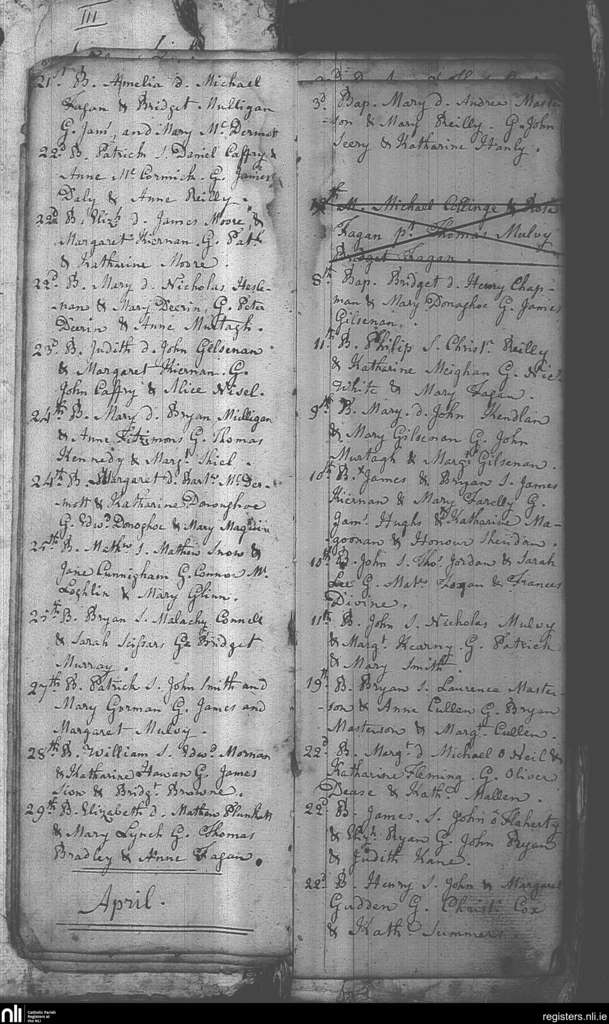 III
21st B. Amelia d. Michael
Fagan & Bridget Mulligan
G. Jams. and Mary Mc. Dermot
22d B. Patrick S. Daniel Caffry &
Anne Mc. Cormick. G. James
Daly & Anne Reilly.
22d B. Elizh. d. James Moore, &
Margaret Kiernan. G. Patk.
& Katharine Moore
22d B. Mary d. Nicholas Hesle-
nan & Mary Deerin, G. Peter
Deerin & Anne Murtagh.
23d B. Judith d. John Gelsenan
& Margaret Kiernan. G.
John Caffry & Alice
24th B. Mary d. Bryan Mulligan
& Anne Fitzimons G. Thomas
Kennedy & Margt. Shiel.
24th B. Margaret d. Bartw. Mc. Der-
mott & Katharine Donoughoe
G. Edwd. Donoghoe & Mary
25th B. Mathw. S. Mathew Snow &
Jane Cunnigham G. Connor Mc.
Loghlin & Mary Glinn.
25th B. Bryan S. Malachy Connell
& Sarah G. Bridget
Murray.
27th B. Patrick S. John Smith and
Mary Gorman G. James and
Margaret Mulvy.
28th B. William S. Edwd. Mornan
& Katharine G. James
Sion & Bridgt. Browne.
29th B. Elizabeth d. Mathew Plunkett
& Mary Lynch G. Thomas
Bradley & Anne Fagan.
April.
3d Bap. Mary d. Andrew Master-
son & Mary Reilly. G. John
Seery & Katharine Hanly.
M. Michael & Rose
Fagan pt. Thomas Mulvy
Bridget Fagan.
8th Bap. Bridget d. Henry Chap-
man & Mary Donaghoe G. James
Gilsenan.
11th B. Philip S. Christr. Reilly
& Katharine Meighan G. Nichs.
White & Mary Fagan.
9th B. Mary d. John Kendlan
& Mary Gilsenan G. John
Murtagh & Margt. Gilsenan.
10th B. James & Bryan S. James
Kiernan & Mary Farelly G.
Jams. Hughs & Katharine Ma-
goonan & Honour Sheridan.
10th B. John S. Thos. Jordan & Sarah
Lee G. Matw. & Frances
Divine.
11th B. John S. Nicholas Mulvy
& Margt. Kearny G. Patrick
& Mary Smith.
19th B. Bryan S. Laurence Master-
son & Anne Cullen G. Bryan
Masterson & Margt. Cullen.
22d B. Margt. d Michael O Neil &
Katharine Fleming. G. Oliver
Dease & Kath. Mallen.
22d B. James. S. John o Flaherty
& Elizh. Ryan G. John Bryan
& Judith Kane.
22d B. Henry S. John & Margaret
Gudden G. Christr. Cox
& Kath. Summers
nli
Catholic Parish
Registers at
the NLI
registers.nli.ie